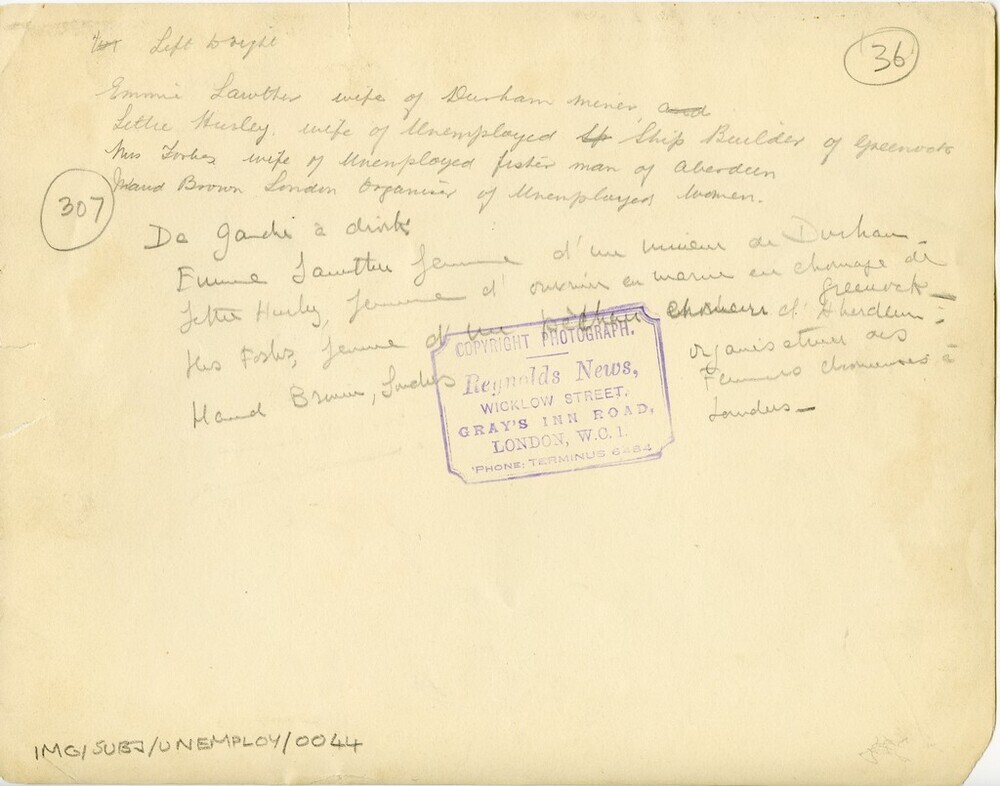 Left to right
36
Emmie Lawther wife of Durham miner and
Lettie Hurley. wife of Unemployed Ship Builder of Greenock
Mrs Forbes wife of Unemployed fisher man of Aberdeen
Maud Brown London Organiser of Unemployed Women.
307
De gauche à droite
Emmie Lawther femme d'un mineur de Durham -
Lettie Hurley, femme d'ouvrier en marine en chomage de
Greenock -
Mrs Forbes, femme d'un pêcheur chomeur d'Aberdeen -
Maud Brown, Londres organisateur des
Femmes chomeuses à
Londres -
COPYRIGHT PHOTOGRAPH.
Reynolds News,
WICKLOW STREET,
GRAY'S INN ROAD,
LONDON, W.C.1.
'PHONE: TERMINUS 6484
IMG/SUBJ/UNEMPLOY/0044